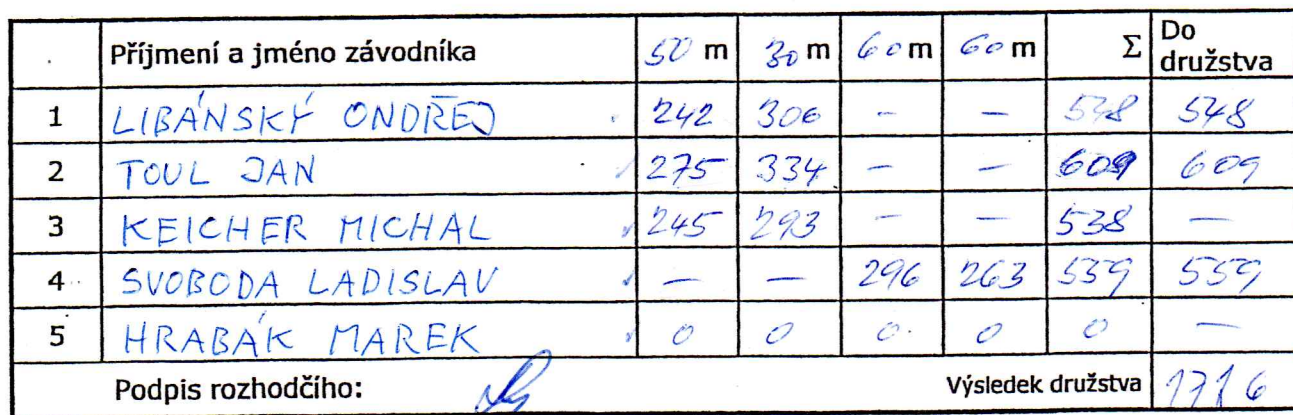 Příjmení a jméno závodníka 50 m 30 m 60 m 60 m Σ Do družstva
1 LIBÁNSKÝ ONDŘEJ 242 306 - - 548 548
2 TOUL JAN 275 334 - - 609 609
3 KEICHER MICHAL 245 293 - - 538 -
4 SVOBODA LADISLAV - - 296 263 559 559
5 HRABÁK MAREK 0 0 0 0 0 -
Podpis rozhodčího: Výsledek družstva 1716